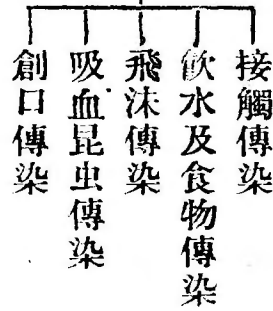 接觸傳染
飲水及食物傳染
飛沫傳染
吸血昆虫傳染
創口傳染